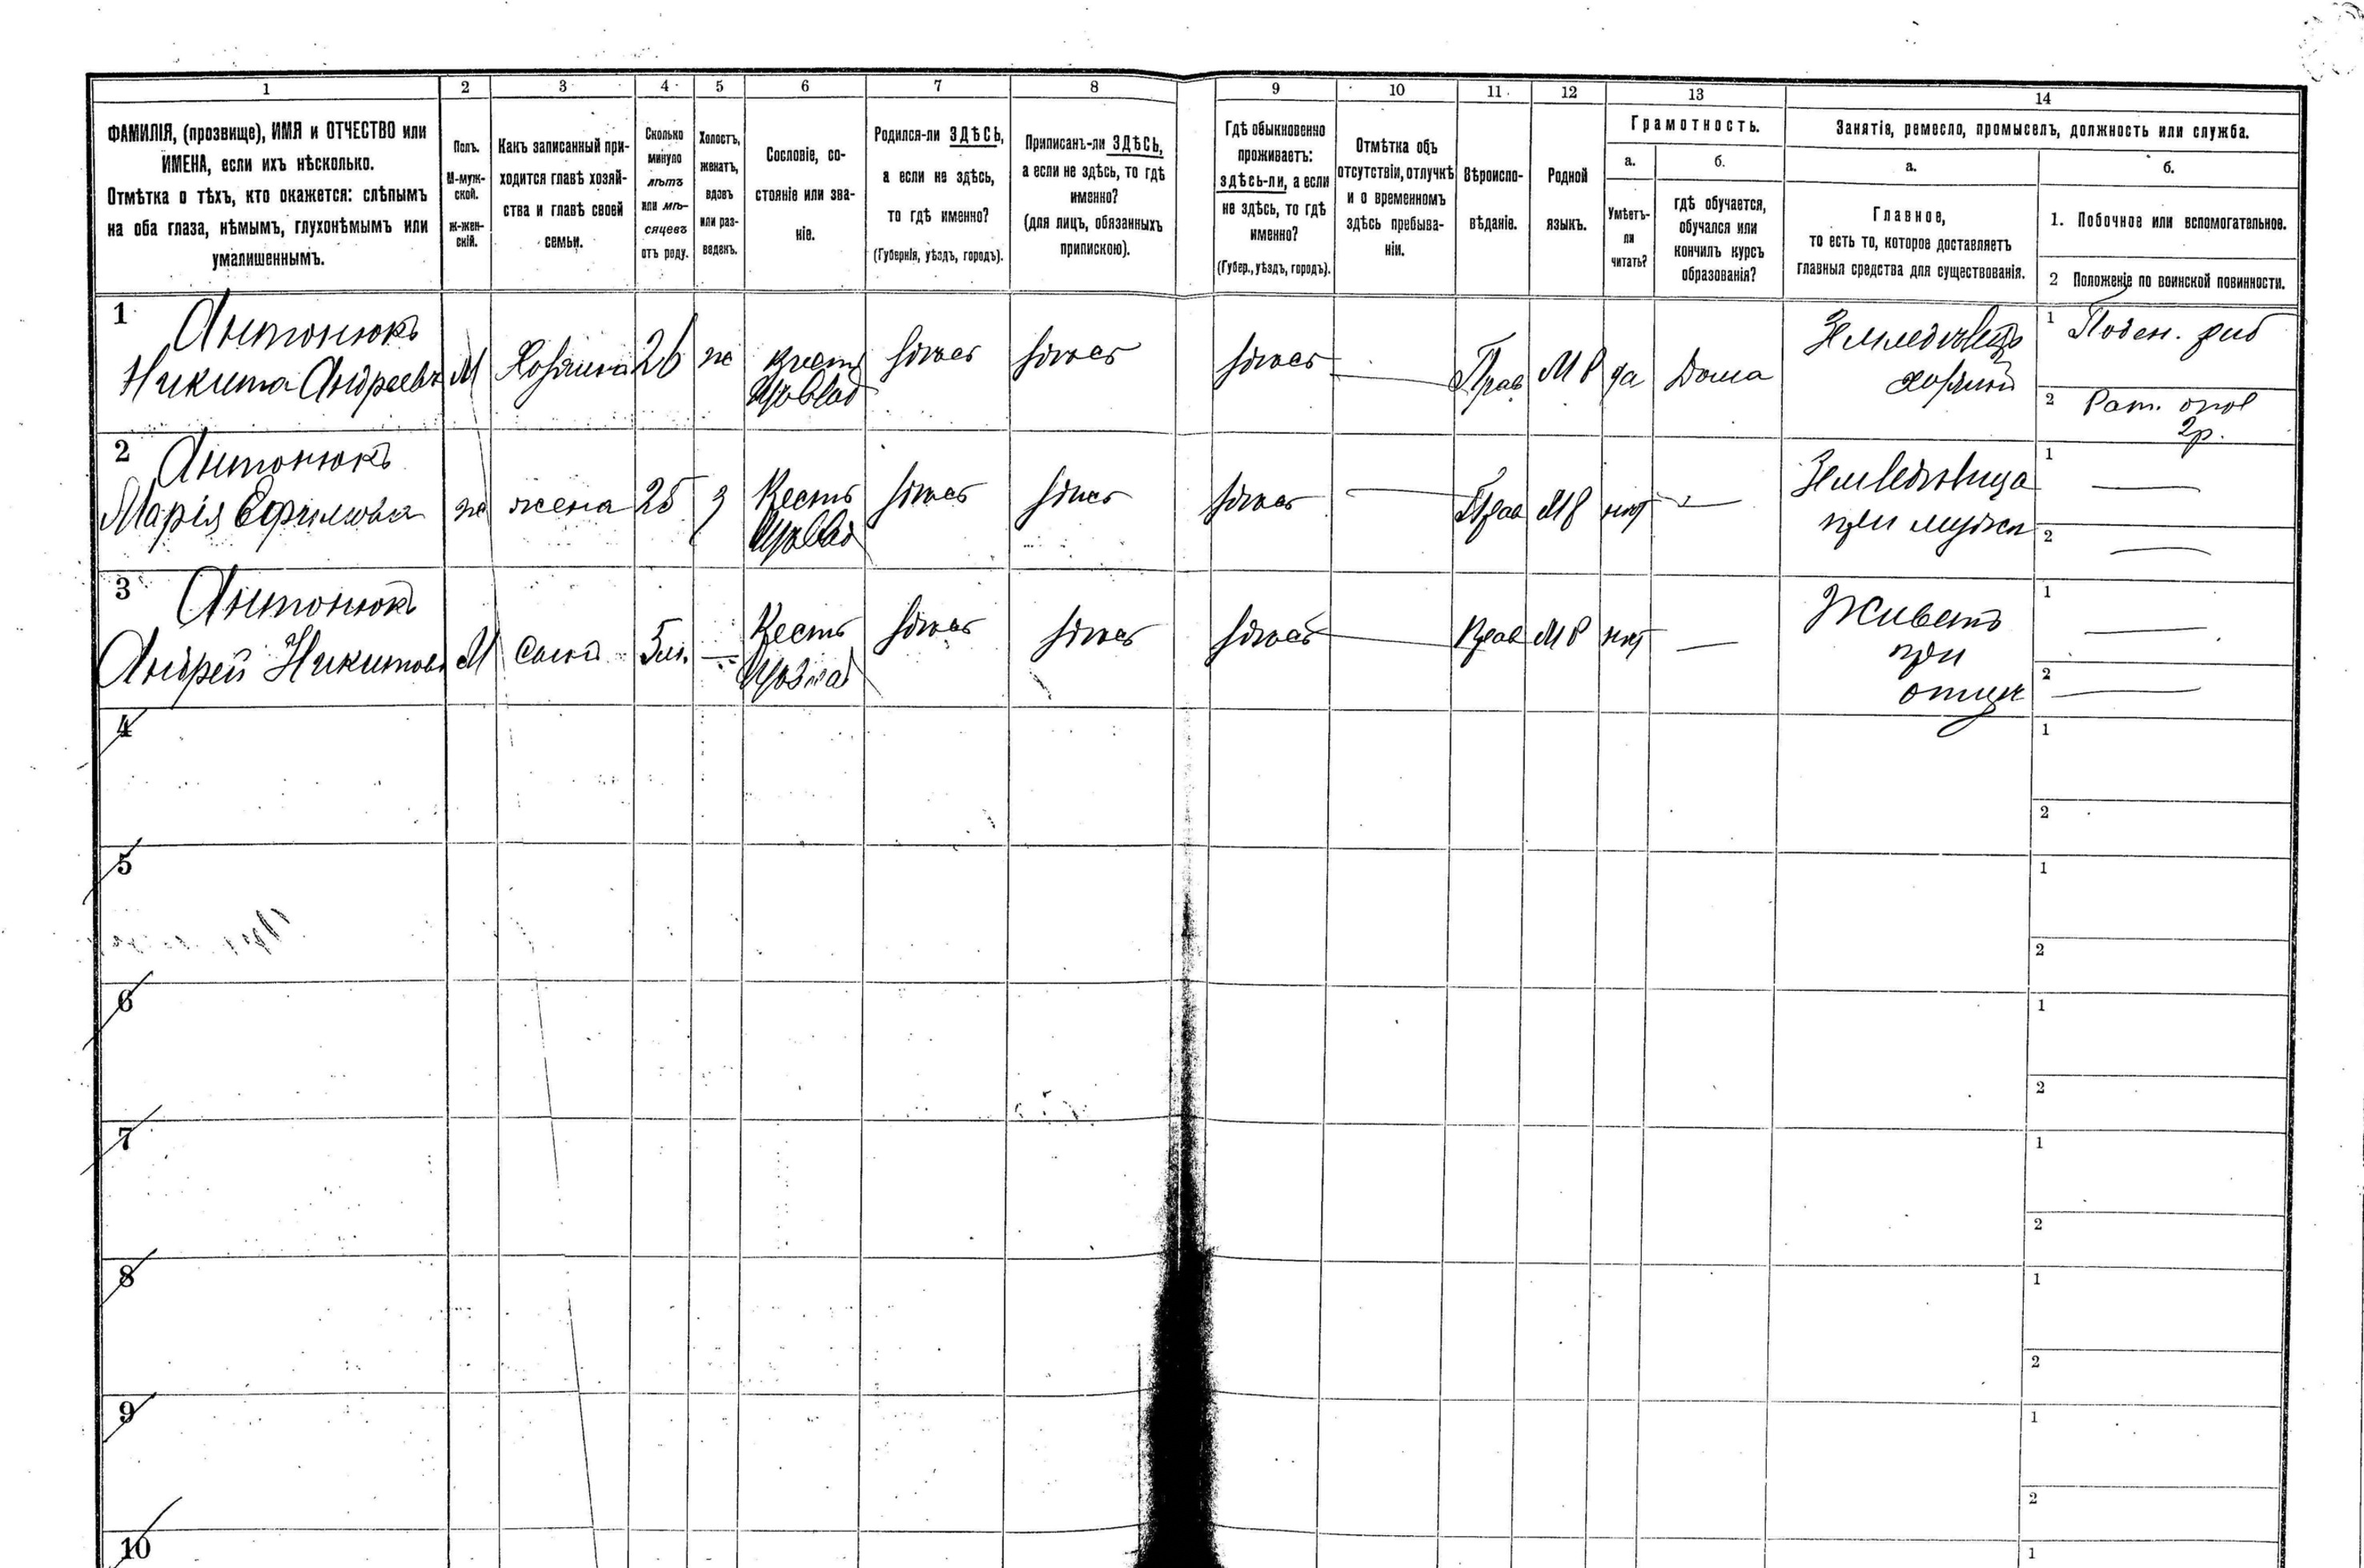 1 2 3 4 5 6 7 8 9 10 11 12 13 14
ФАМИЛІЯ, (прозвище), ИМЯ и ОТЧЕСТВО или
ИМЕНА, если ихъ нѣсколько.
Отмѣтка о тѣхъ, кто окажется: слѣпымъ
на оба глаза, нѣмымъ, глухонѣмымъ или
умалишеннымъ.
Полъ.
М-муж-
ской.
Ж-жен-
скій.
Какъ записанный при-
ходится главѣ хозяй-
ства и главѣ своей
семьи.
Сколько
минуло
лѣтъ
или мѣ-
сяцевъ
отъ роду.
Холостъ,
женатъ,
вдовъ
или раз-
веденъ.
Сословіе, со-
стояніе или зва-
ніе.
Родился-ли ЗДѢСЬ,
а если не здѣсь,
то гдѣ именно?
(Губернія, уѣздъ, городъ).
Приписанъ-ли ЗДѢСЬ,
а если не здѣсь, то гдѣ
именно?
(для лицъ, обязанныхъ
припискою).
Гдѣ обыкновенно
проживаетъ:
здѣсь-ли, а если
не здѣсь, то гдѣ
именно?
(Губер., уѣздъ, городъ).
Отмѣтка объ
отсутствіи, отлучкѣ
и о временномъ
здѣсь пребыва-
ніи.
Вѣроиспо-
вѣданіе.
Родной
языкъ.
Грамотность.
а.
Умѣетъ-
ли
читать?
б.
гдѣ обучается,
обучался или
кончилъ курсъ
образованія?
Занятія, ремесло, промыселъ, должность или служба.
а.
Главное,
то есть то, которое доставляетъ
главныя средства для существованія.
б.
1. Побочное или вспомогательное.
2 Положеніе по воинской повинности.
1 Антонюкъ
Никита Андреевъ М Хозяинъ 26 ж здѣсь здѣсь здѣсь — Прав М Р да Дома
хозяинъ
1 Поден. раб
2 Рат. опол
2р.
2 Антонюкъ
Марія Ефимова ж жена 25 з здѣсь здѣсь здѣсь — Прав М Р нѣт —
при мужѣ
1 —
2 —
3 Антонюкъ
Андрей Никитовъ М сынъ 5м. — здѣсь здѣсь здѣсь — Прав М Р нѣт —
Живетъ
при
отцѣ
1 —
2 —
4
1
2
5
1
2
6
1
2
7
1
2
8
1
2
9
1
2
10
1